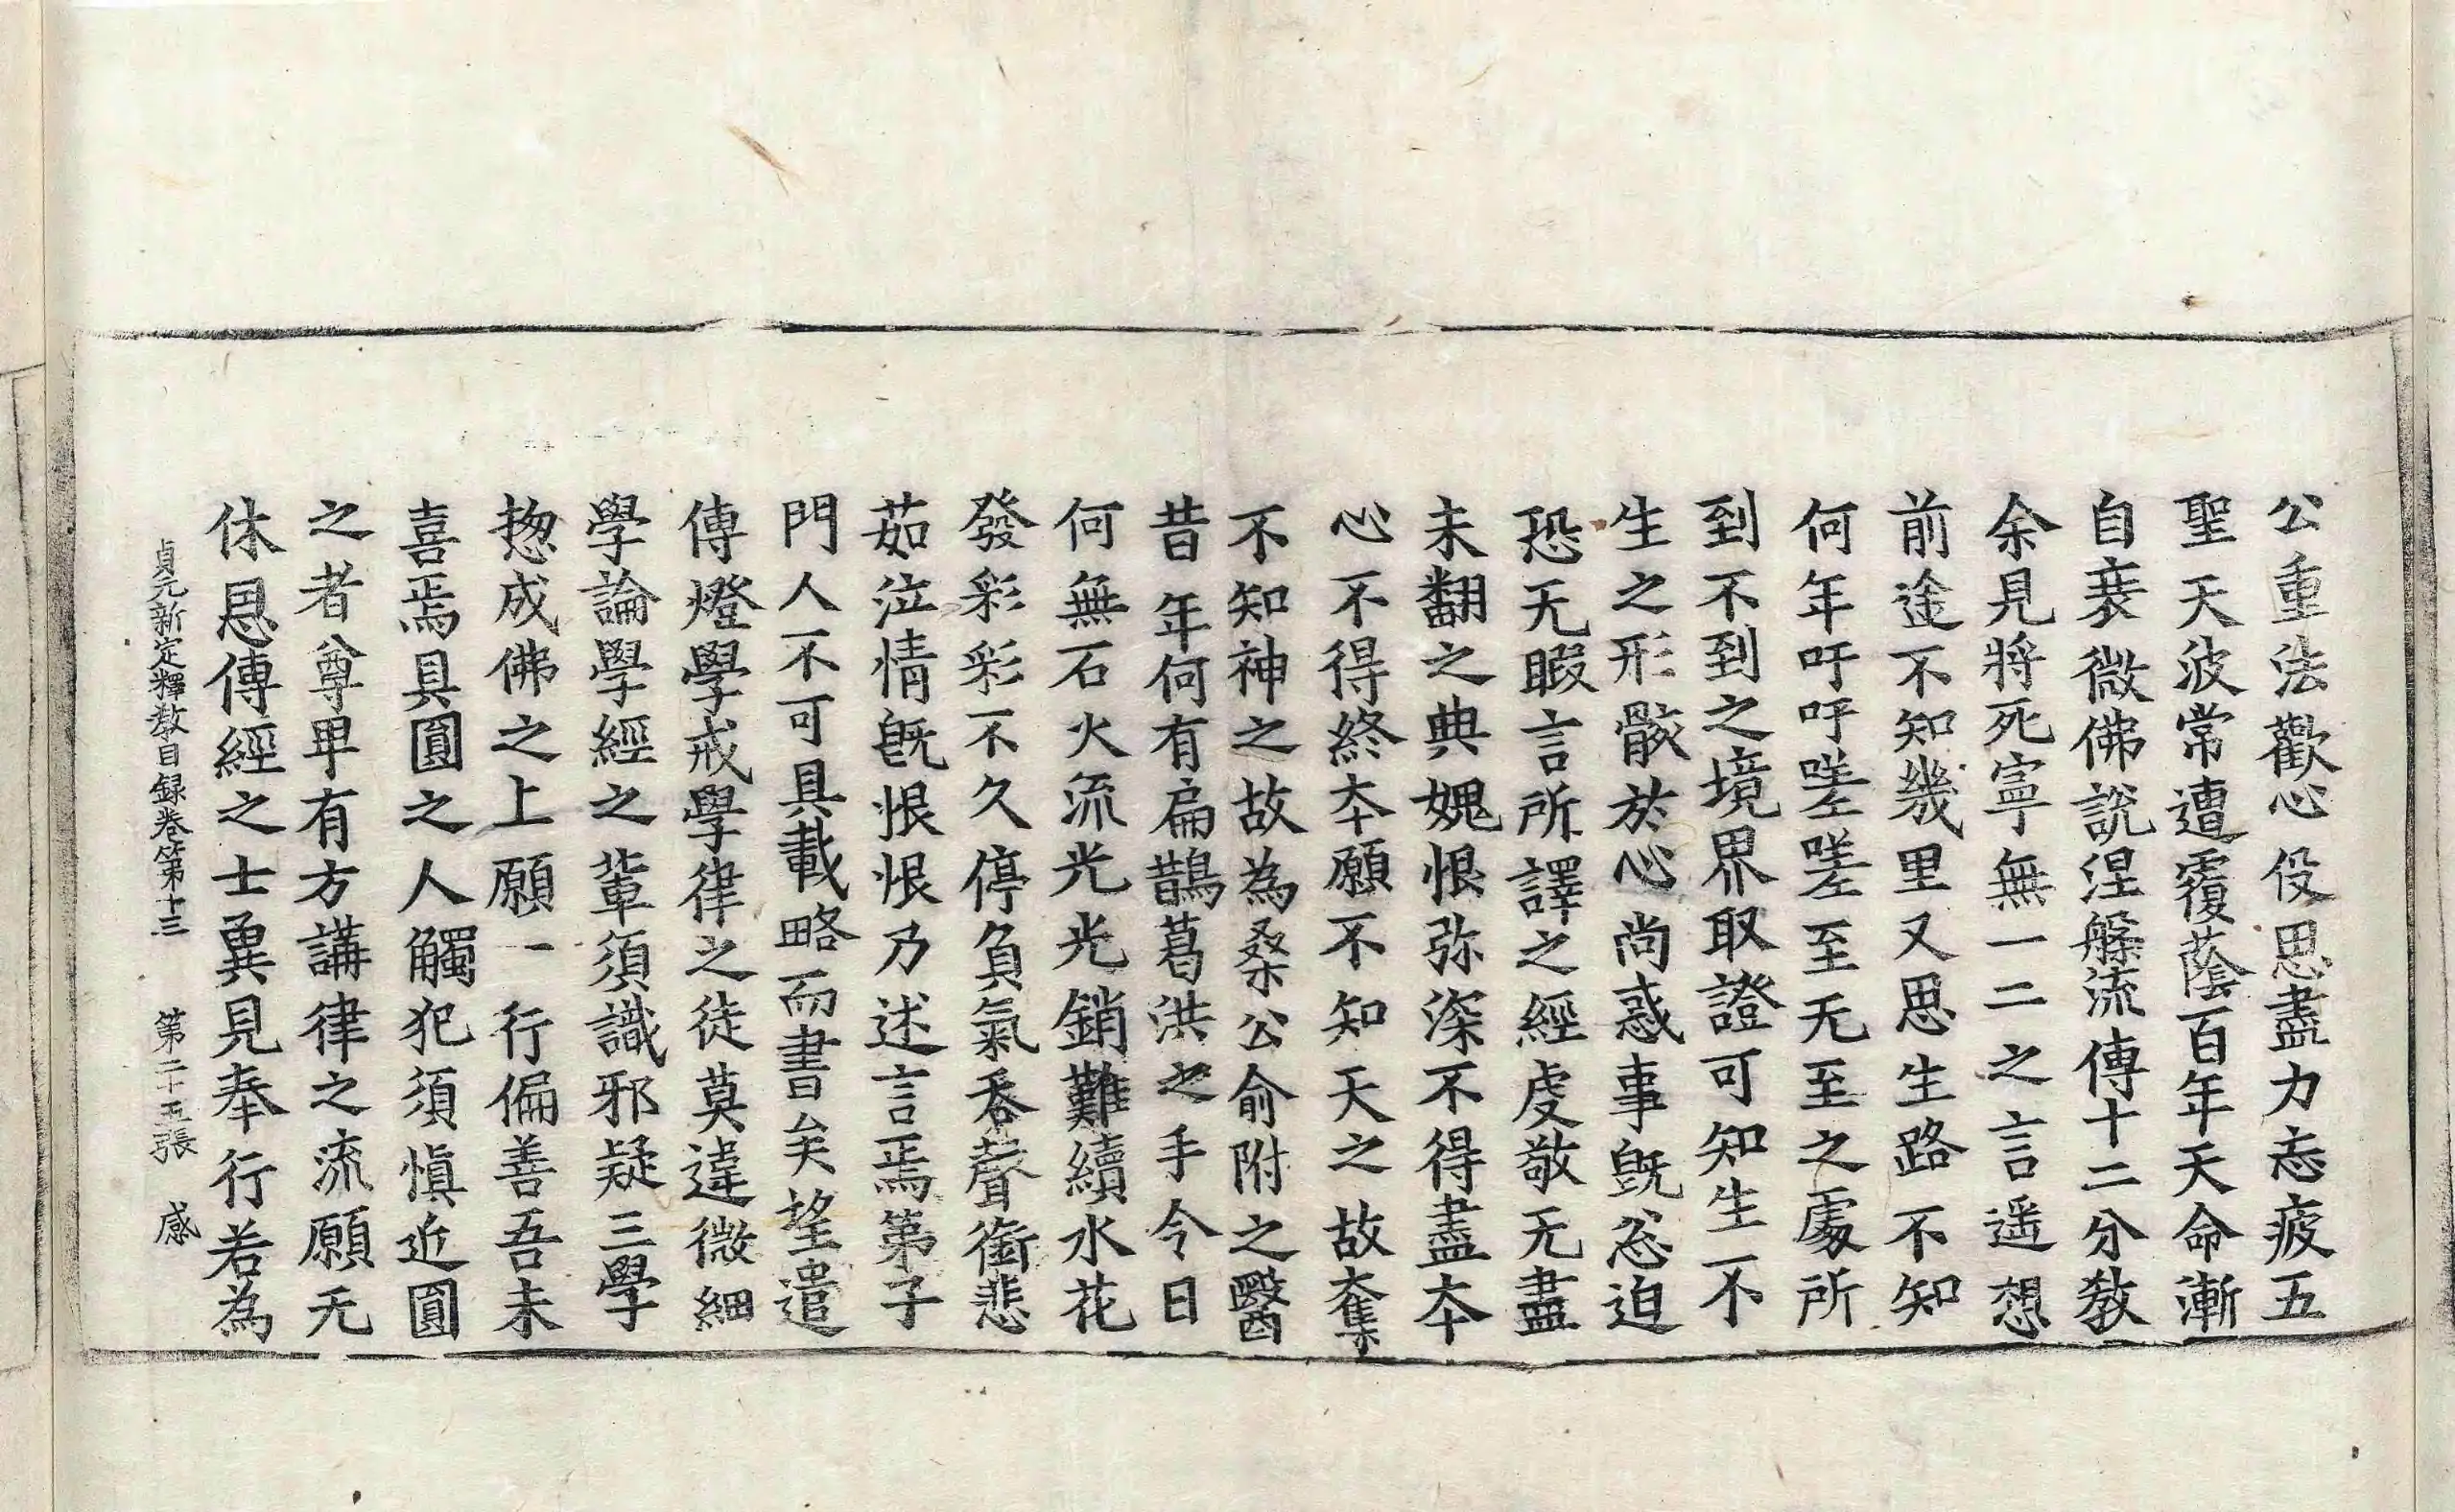 公重法歡心役思盡力忘疲五
聖天波常遭覆蔭百年天命漸
自衰微佛說涅槃流傳十二分教
余見將死寧無一二之言遥想
前途不知幾里又思生路不知
何年吁吁嗟嗟至无至之處所
到不到之境界取證可知生不
生之形骸於心尚惑事旣忩迫
恐无暇言所譯之經虔敬无盡
未翻之典媿恨弥深不得盡本
心不得終本願不知天之故奪
不知神之故為桑公俞附之醫
昔年何有扁鵲葛洪之手今日
何無石火流光光銷難續水花
發彩彩不久停負氣吞聲銜悲
茹泣情旣恨恨乃述言焉第子
門人不可具載略而書矣望遣
傳燈學戒學律之徒莫違微細
學論學經之軰須識邪疑三學
揔成佛之上願一行偏善吾未
喜焉具圓之人觸犯須慎近圓
之者尊卑有方講律之流願无
休息傳經之士兾見奉行若為
貞元新定釋教目録卷第十三　第二十五張　感